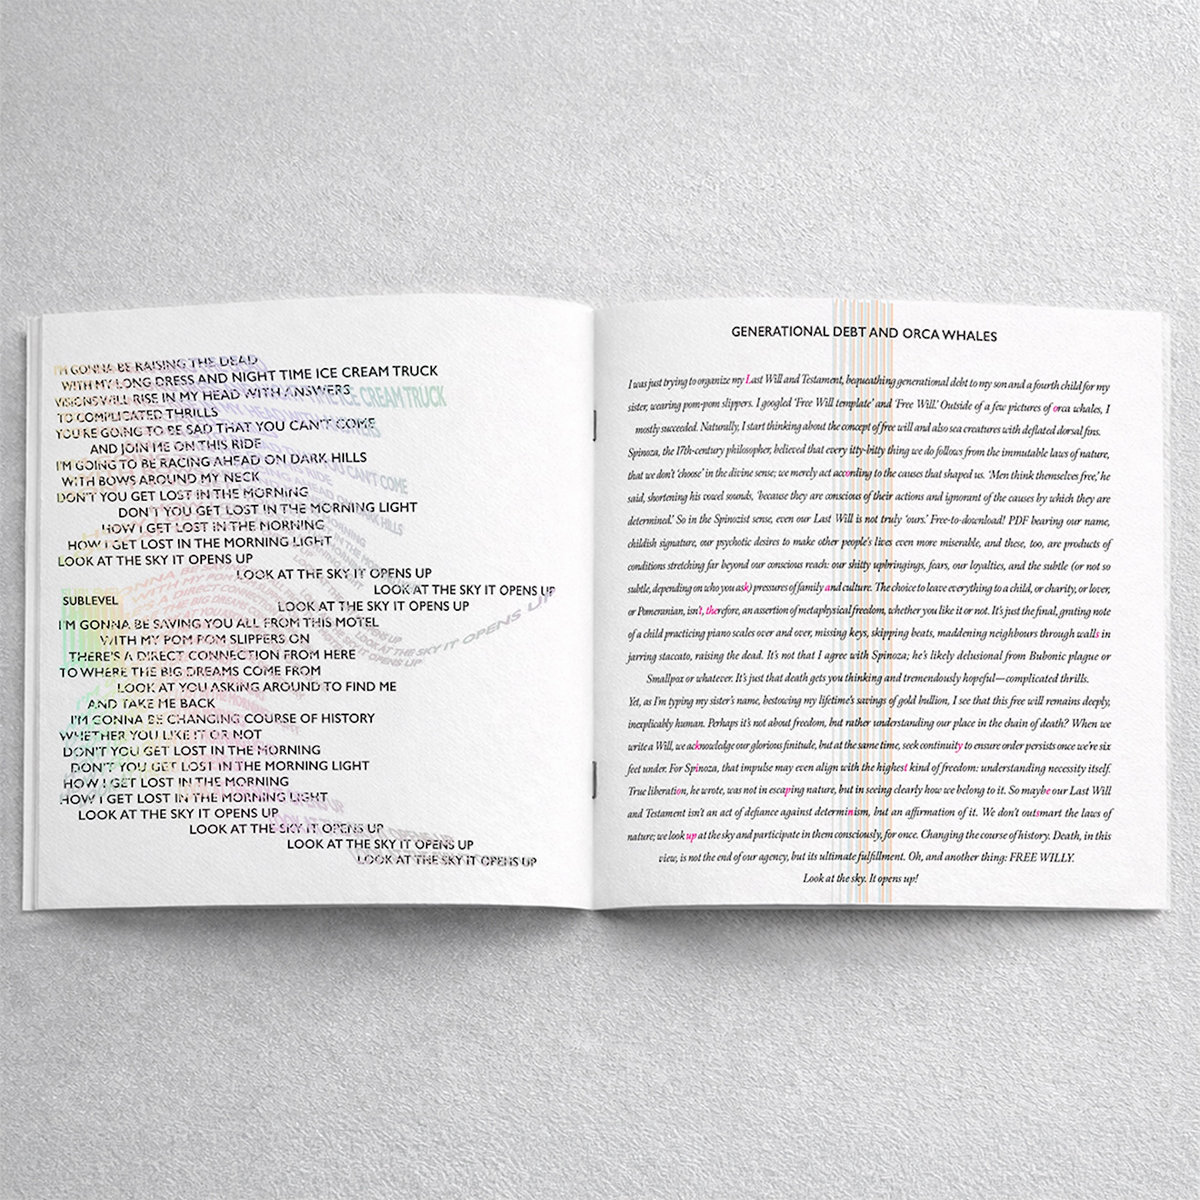 I'M GONNA BE RAISING THE DEAD
WITH MY LONG DRESS AND NIGHT TIME ICE CREAM TRUCK
VISIONS WILL RISE IN MY HEAD WITH ANSWERS
TO COMPLICATED THRILLS
YOU'RE GOING TO BE SAD THAT YOU CAN'T COME
AND JOIN ME ON THIS RIDE
I'M GOING TO BE RACING AHEAD ON DARK HILLS
WITH BOWS AROUND MY NECK
DON'T YOU GET LOST IN THE MORNING
DON'T YOU GET LOST IN THE MORNING LIGHT
HOW I GET LOST IN THE MORNING
HOW I GET LOST IN THE MORNING LIGHT
LOOK AT THE SKY IT OPENS UP
LOOK AT THE SKY IT OPENS UP
LOOK AT THE SKY IT OPENS UP
SUBLEVEL
LOOK AT THE SKY IT OPENS UP
I'M GONNA BE SAVING YOU ALL FROM THIS MOTEL
WITH MY POM POM SLIPPERS ON
THERE'S A DIRECT CONNECTION FROM HERE
TO WHERE THE BIG DREAMS COME FROM
LOOK AT YOU ASKING AROUND TO FIND ME
AND TAKE ME BACK
I'M GONNA BE CHANGING COURSE OF HISTORY
WHETHER YOU LIKE IT OR NOT
DON'T YOU GET LOST IN THE MORNING
DON'T YOU GET LOST IN THE MORNING LIGHT
HOW I GET LOST IN THE MORNING
HOW I GET LOST IN THE MORNING LIGHT
LOOK AT THE SKY IT OPENS UP
LOOK AT THE SKY IT OPENS UP
LOOK AT THE SKY IT OPENS UP
LOOK AT THE SKY IT OPENS UP
GENERATIONAL DEBT AND ORCA WHALES
I was just trying to organize my Last Will and Testament, bequeathing generational debt to my son and a fourth child for my
sister, wearing pom-pom slippers. I googled 'Free Will template' and 'Free Will.' Outside of a few pictures of orca whales, I
mostly succeeded. Naturally, I start thinking about the concept of free will and also sea creatures with deflated dorsal fins.
Spinoza, the 17th-century philosopher, believed that every itty-bitty thing we do follows from the immutable laws of nature,
that we don't 'choose' in the divine sense; we merely act according to the causes that shaped us. 'Men think themselves free,' he
said, shortening his vowel sounds, 'because they are conscious of their actions and ignorant of the causes by which they are
determined.' So in the Spinozist sense, even our Last Will is not truly 'ours.' Free-to-download! PDF bearing our name,
childish signature, our psychotic desires to make other people's lives even more miserable, and these, too, are products of
conditions stretching far beyond our conscious reach: our shitty upbringings, fears, our loyalties, and the subtle (or not so
subtle, depending on who you ask) pressures of family and culture. The choice to leave everything to a child, or charity, or lover,
or Pomeranian, isn't, therefore, an assertion of metaphysical freedom, whether you like it or not. It's just the final, grating note
of a child practicing piano scales over and over, missing keys, skipping beats, maddening neighbours through walls in
jarring staccato, raising the dead. It's not that I agree with Spinoza; he's likely delusional from Bubonic plague or
Smallpox or whatever. It's just that death gets you thinking and tremendously hopeful—complicated thrills.
Yet, as I'm typing my sister's name, bestowing my lifetime's savings of gold bullion, I see that this free will remains deeply,
inexplicably human. Perhaps it's not about freedom, but rather understanding our place in the chain of death? When we
write a Will, we acknowledge our glorious finitude, but at the same time, seek continuity to ensure order persists once we're six
feet under. For Spinoza, that impulse may even align with the highest kind of freedom: understanding necessity itself.
True liberation, he wrote, was not in escaping nature, but in seeing clearly how we belong to it. So maybe our Last Will
and Testament isn't an act of defiance against determinism, but an affirmation of it. We don't outsmart the laws of
nature; we look up at the sky and participate in them consciously, for once. Changing the course of history. Death, in this
view, is not the end of our agency, but its ultimate fulfillment. Oh, and another thing: FREE WILLY.
Look at the sky. It opens up!